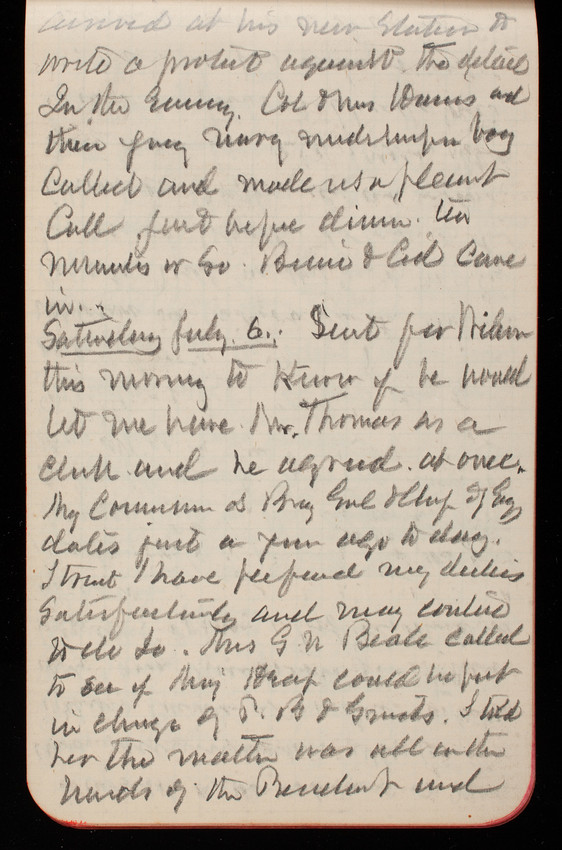 arrived at his new Station to
write a protest against the detail
In the Evening, Col & Mrs and
their Navy boy
Called and made us a pleasant
Call just before dinner. Ten
Minutes or So. Bessie & Col Came
in.
Saturday July. 6. Sent for Wilson
this morning to Know if he would
let me have Mr. Thomas as a
clerk and he agreed at once.
My Commission as Brig Genl & Chf of Eng
dates just a year ago to day.
I trust I have performed my duties
Satisfactorily and may continue
to do So. Mrs G N Beale called
to see if Maj could be put
in charge of P. B & Grounds. I told
her the matter was all in the
hands of the President and